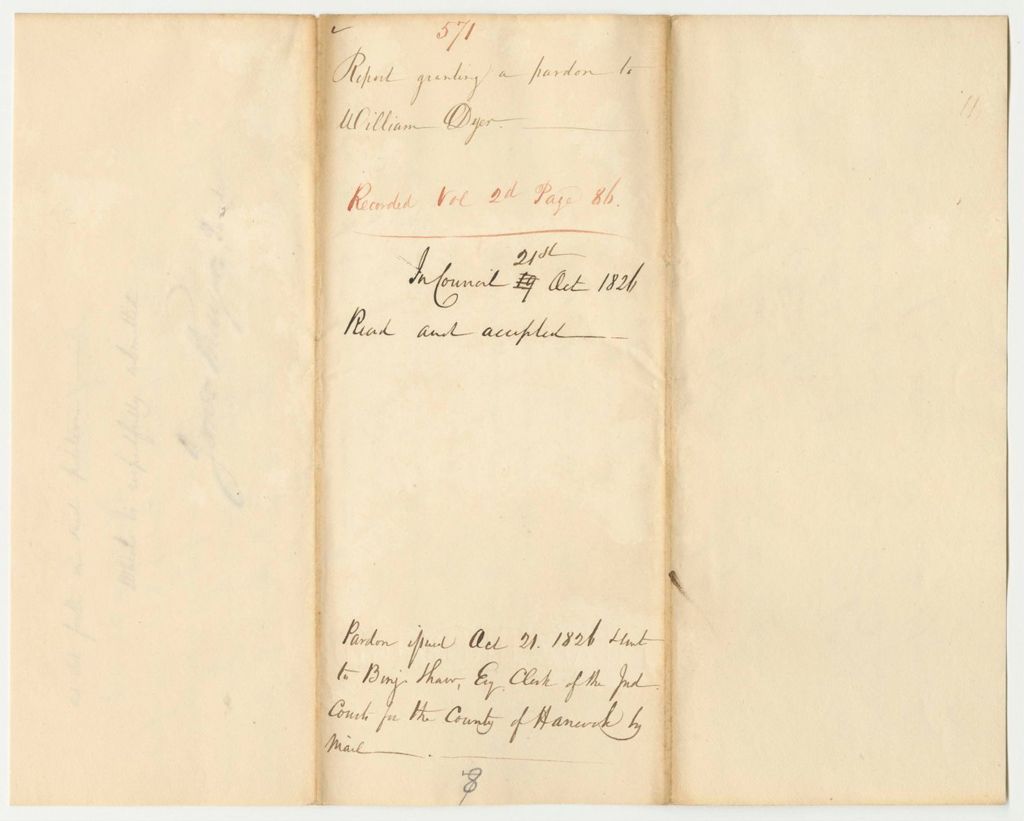 571
Report granting a pardon to
William Dyer
Recorded Vol 2d Page 86.
21st
In Council 19 Oct 1826
Read and accepted
Pardon issued Oct 21. 1826 & sent
to Benj. Shaw, Esq. Clerk of the Jud
Courts for the County of Hancock by
Mail
8